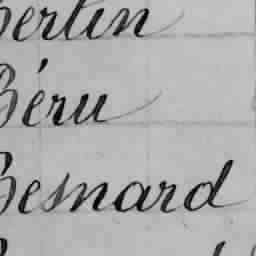 Bertin
Béru
Besnard